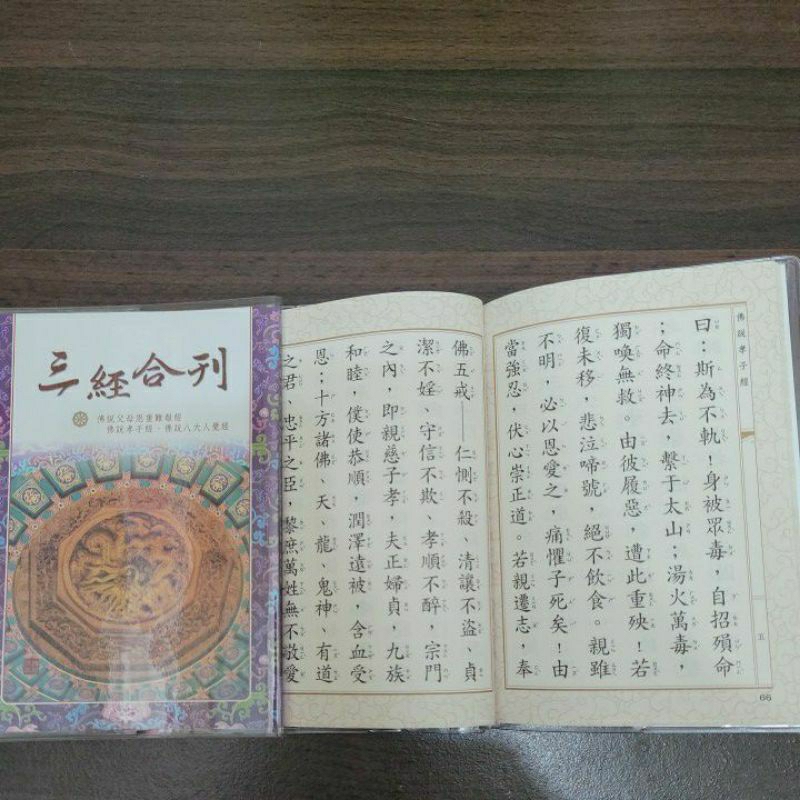 三經合刊
佛說父母恩重難報經
佛說孝子經、佛說八大人覺經
佛說孝子經
曰：斯為不軌！身被眾毒，自招殞命
；命終神去，繫于太山；湯火萬毒，
獨喚無救。由彼履惡，遭此重殃！若
復未移，悲泣啼號，絕不飲食。親雖
不明，必以恩愛之，痛懼子死矣！由
當強忍，伏心崇正道。若親遷志，奉
五
66
佛五戒——仁惻不殺、清讓不盜、貞
潔不婬、守信不欺、孝順不醉，宗門
之內，即親慈子孝，夫正婦貞，九族
和睦，僕使恭順，潤澤遠被，含血受
恩；十方諸佛、天、龍、鬼神、有道
之君、忠平之臣，黎庶萬姓無不敬愛